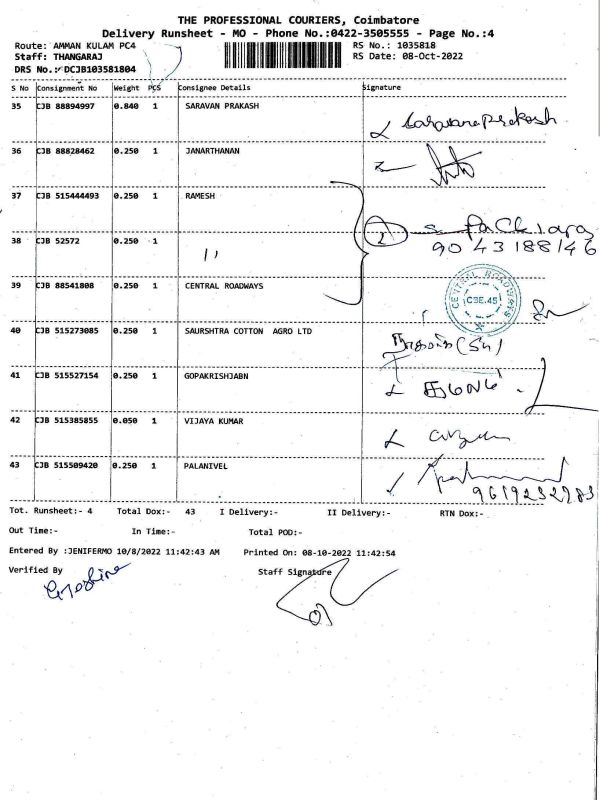 THE PROFESSIONAL COURIERS, Coimbatore
Delivery Runsheet - MO - Phone No.:0422-3505555 - Page No.:4
Route: AMMAN KULAM PC4 RS No.: 1035818
Staff: THANGARAJ RS Date: 08-Oct-2022
DRS No.: DCJB103581804
S No Consignment No Weight PCS Consignee Details Signature
35 CJB 88894997 0.840 1 SARAVAN PRAKASH
36 CJB 88828462 0.250 1 JANARTHANAN
37 CJB 515444493 0.250 1 RAMESH
38 CJB 52572 0.250 1 〃
9043188146
39 CJB 88541808 0.250 1 CENTRAL ROADWAYS
CENTRAL ROADWAYS
CBE.45
40 CJB 515273085 0.250 1 SAURSHTRA COTTON AGRO LTD
41 CJB 515527154 0.250 1 GOPAKRISHJABN
42 CJB 515385855 0.050 1 VIJAYA KUMAR
43 CJB 515509420 0.250 1 PALANIVEL
Tot. Runsheet:- 4 Total Dox:- 43 I Delivery:- II Delivery:- RTN Dox:-
Out Time:- In Time:- Total POD:-
Entered By :JENIFERMO 10/8/2022 11:42:43 AM Printed On: 08-10-2022 11:42:54
Verified By Staff Signature